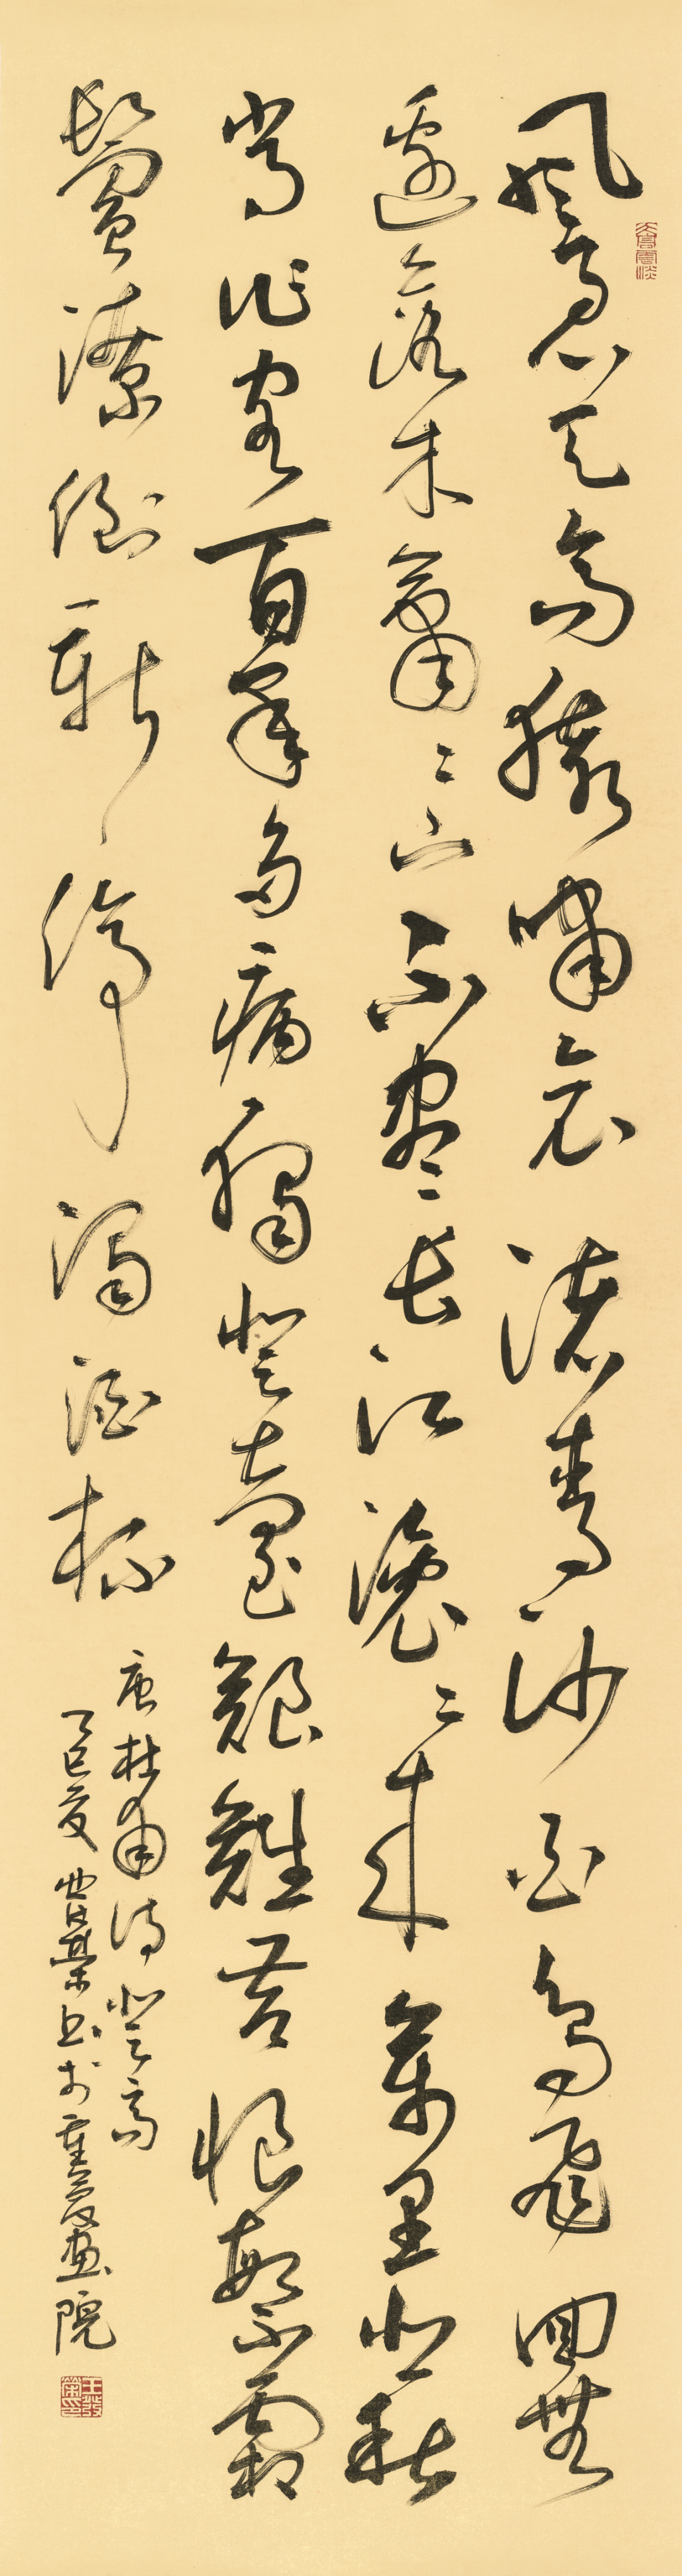 天高雲淡
風急天高猿嘯哀渚青沙白鳥飛回無
邊落木蕭〻下不盡長江滾〻來萬里悲秋
常作客百年多病獨登臺艱難苦恨繁霜
鬢潦倒新停濁酒杯
唐杜甫詩登高
乙巳夏書於重慶畫院